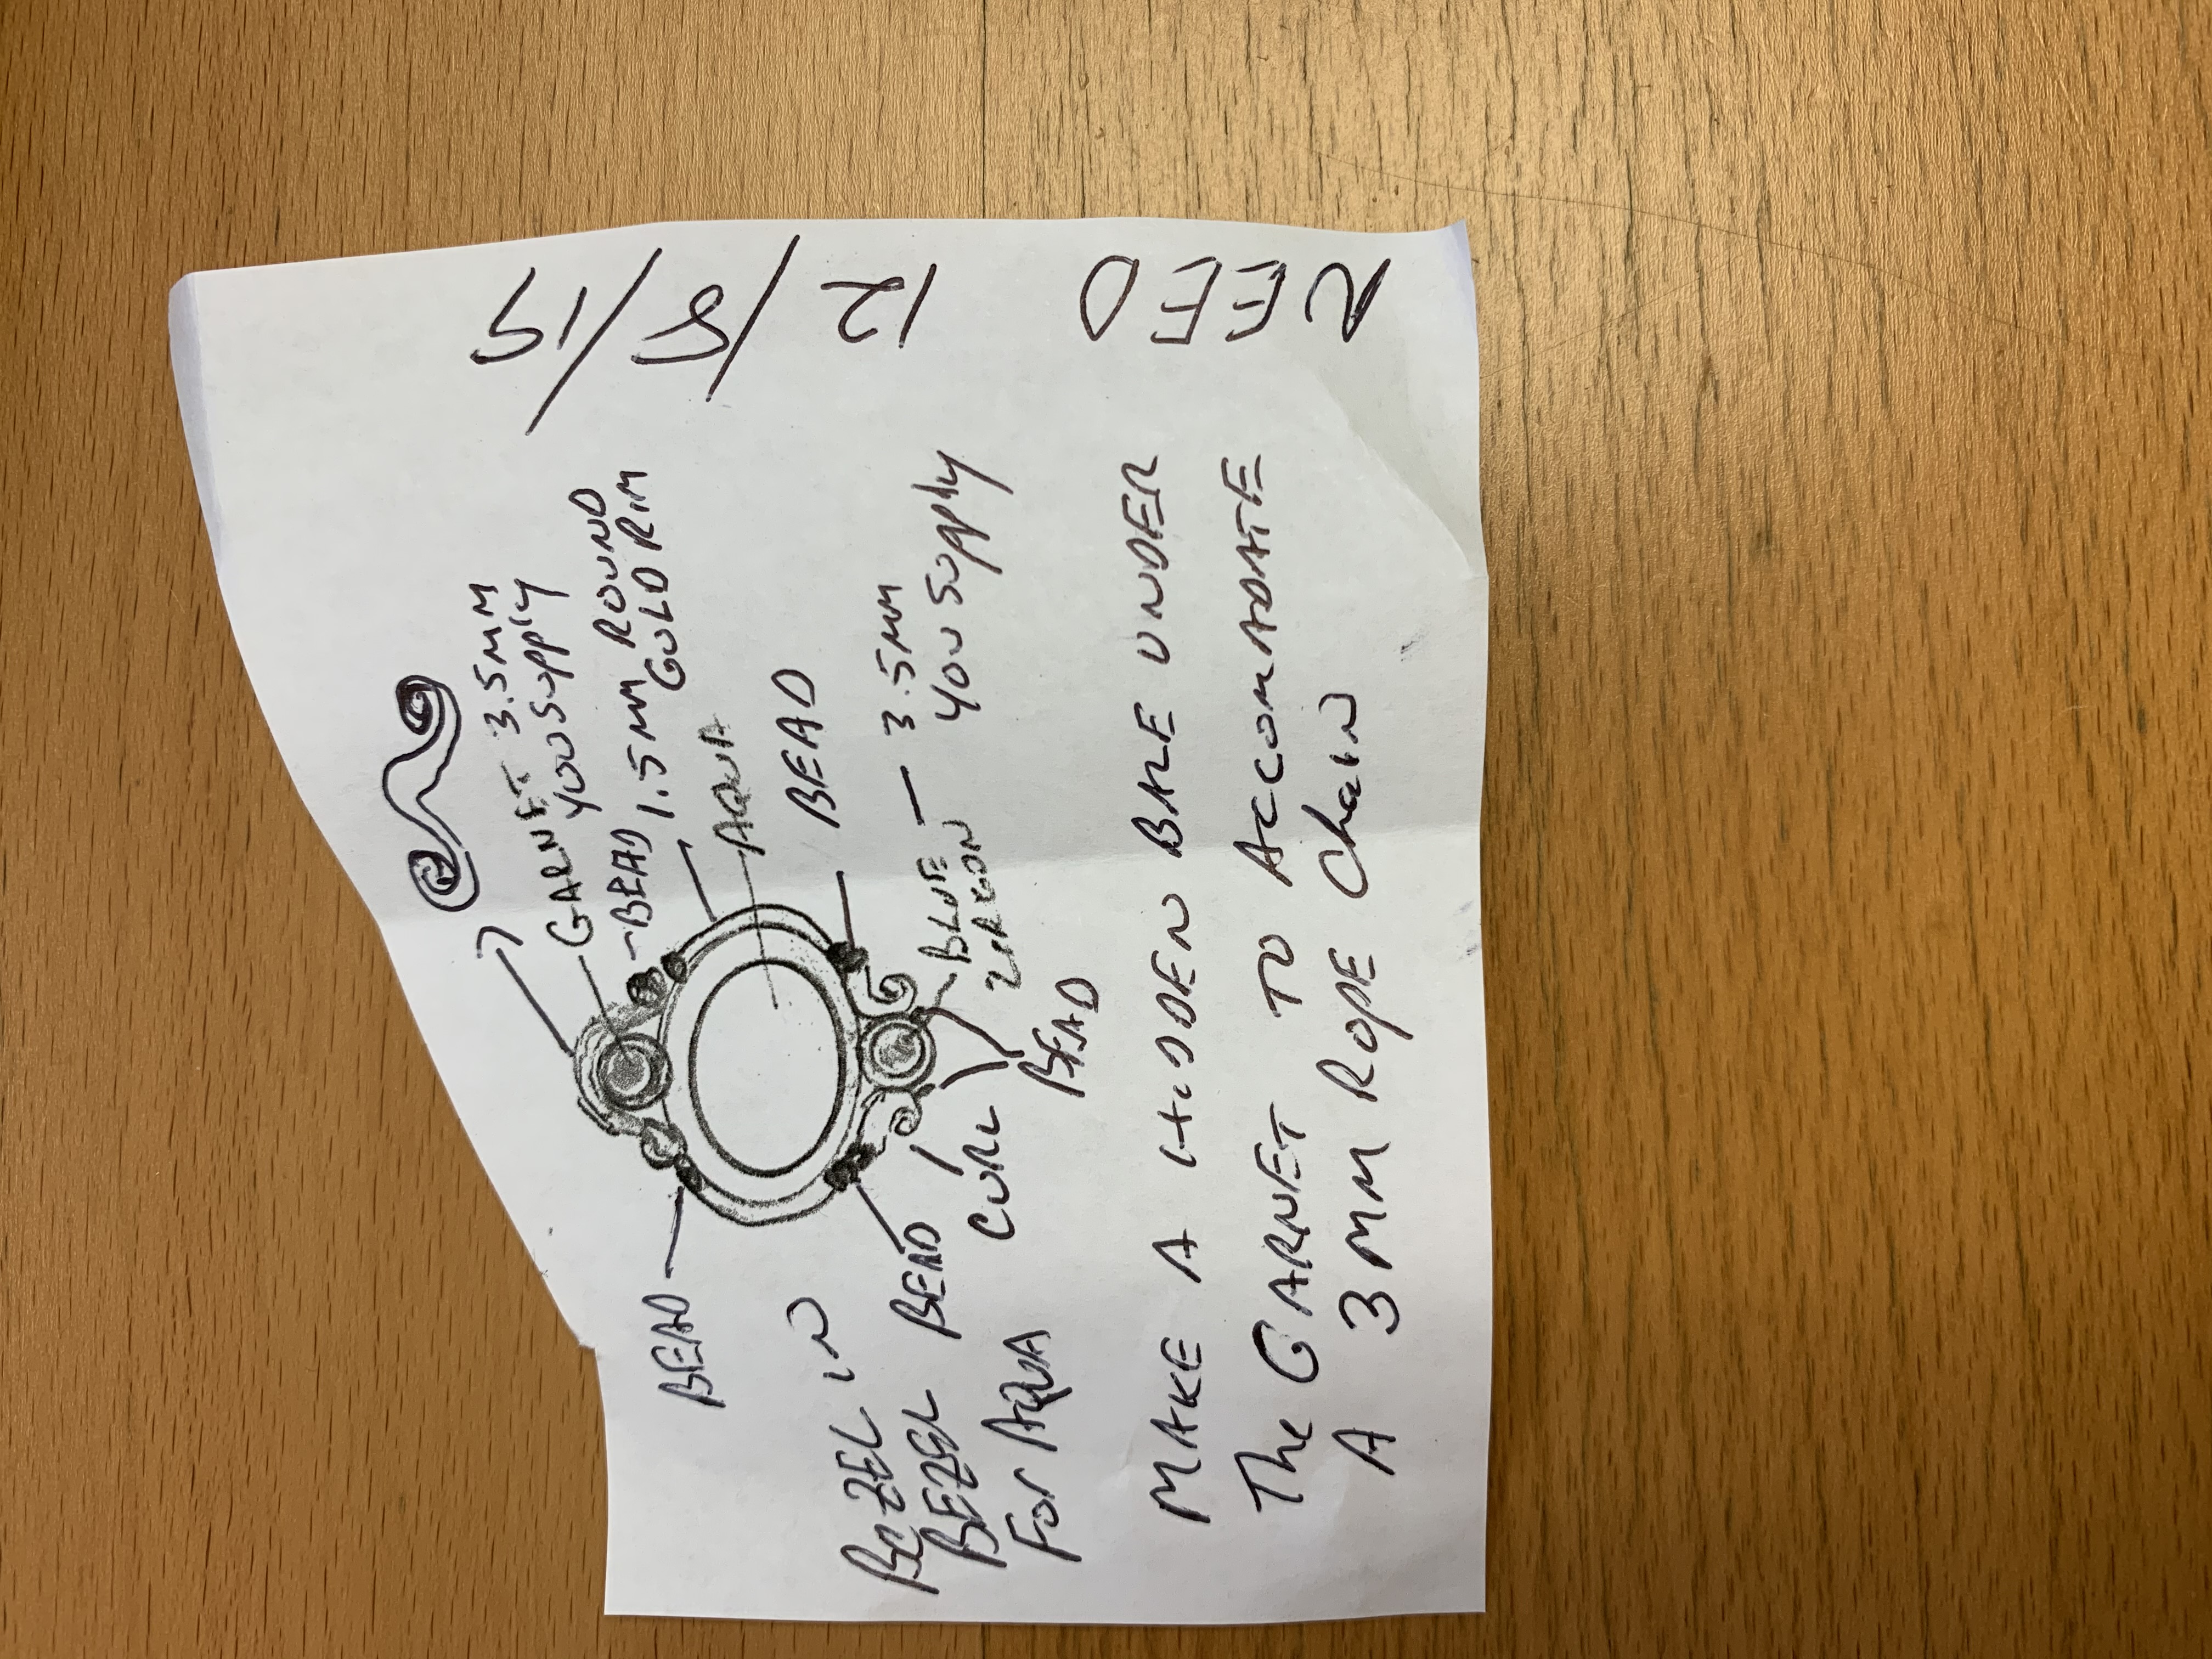 GARNET 3.5MM
YOU SUPPly
BEAD
BEAD
1.5MM ROUND
GOLD RIM
AQUA
BEAD
BEZEL IN
BEZEL
For AQUA
BEAD
CURL
BEAD
BLUE
ZIRKON
3.5MM
YOU SUPPly
MAKE A HIDDEN BALE UNDER
The GARNET TO ACCOMADATE
A 3MM ROPE ChaIN
NEED 12/8/19